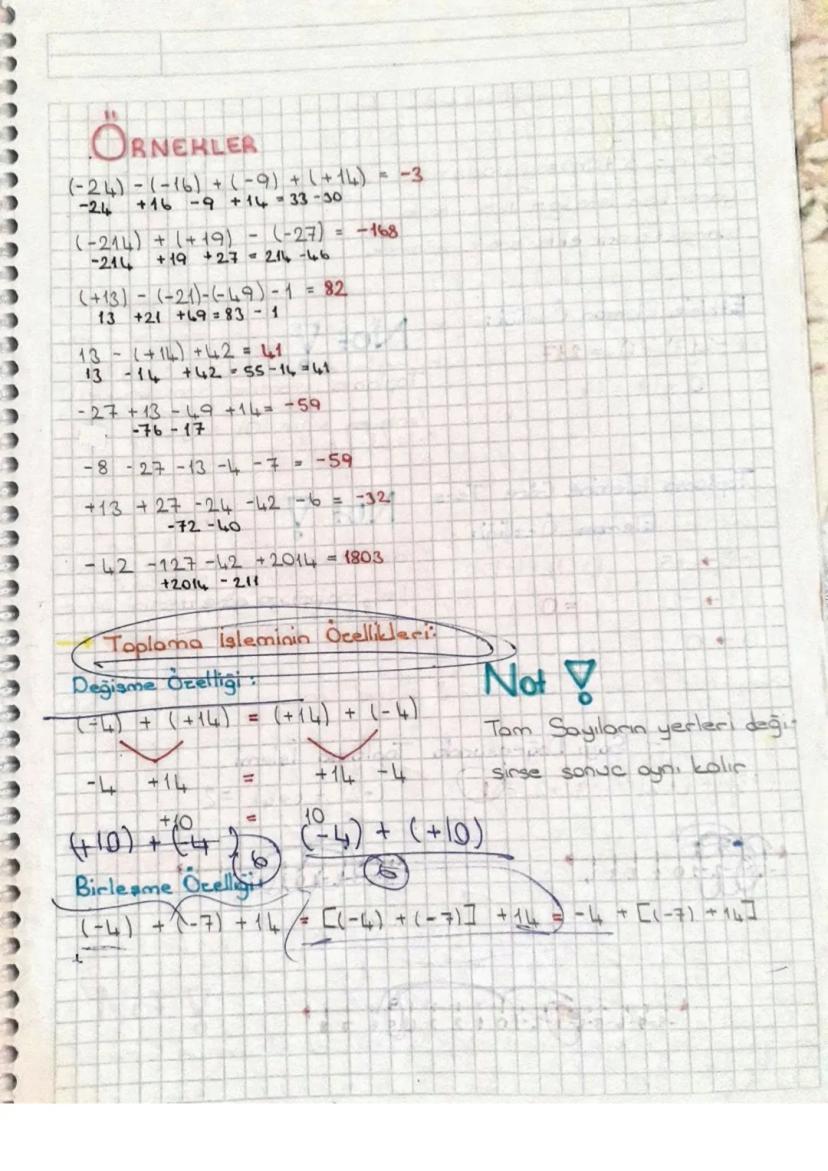 ÖRNEKLER
(-24) - (-16) + (-9) + (+14) = -3
-24 +16 -9 +14 = 33 -30
(-214) + (+19) - (-27) = -168
-214 +19 +27 = 214 -46
(+13) - (-21)-(-49) -1 = 82
13 +21 +49 = 83 - 1
13 - (+14) +42 = 41
13 -14 +42 = 55 -14 = 41
-27 +13 - 49 +14 = -59
-76 -17
-8 -27 -13 -4 -7 = -59
+13 +27 -24 -42 -6 = -32
-72 -40
-42 -127 -42 +2014 = 1803
+2014 - 211
Toplama işleminin Özellikleri:
Değişme Özelliği :
Not !
(-4) + (+14) = (+14) + (-4)
Tam Sayıların yerleri deği-
şirse sonuc aynı kalır
-4 +14 = +14 -4
+10 = 10
(+10) + (-4) 6 (-4) + (+10)
6
Birleşme Özelliği:
(-4) + (-7) + 14 = [(-4) + (-7)] + 14 = -4 + [(-7) + 14]